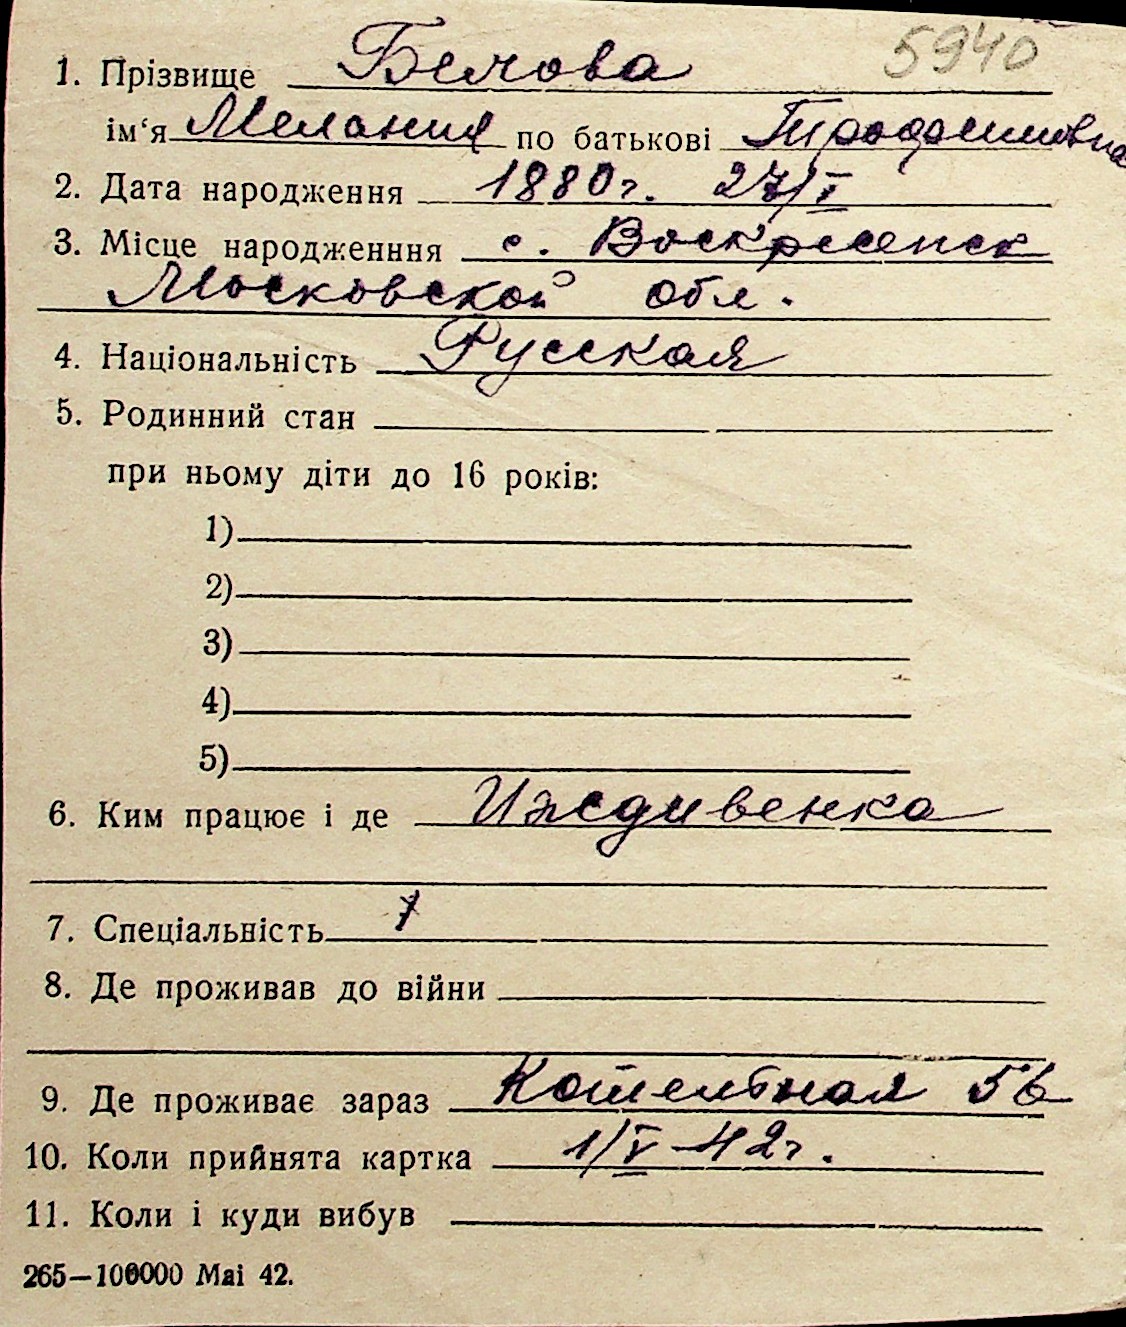 5940
1. Прізвище Белова
ім‘я Мелания по батькові Трофимовна
2. Дата народження 1880г. 27/I
3. Місце народженння с. Воскресенск
Московской обл.
4. Національність Русская
5. Родинний стан
при ньому діти до 16 років:
1)
2)
3)
4)
5)
6. Ким працює і де Иждивенка
7. Спеціальність
8. Де проживав до війни
9. Де проживає зараз Котельная 5б
10. Коли прийнята картка 1/V-42г.
11. Коли і куди вибув
265—100000 Маі 42.